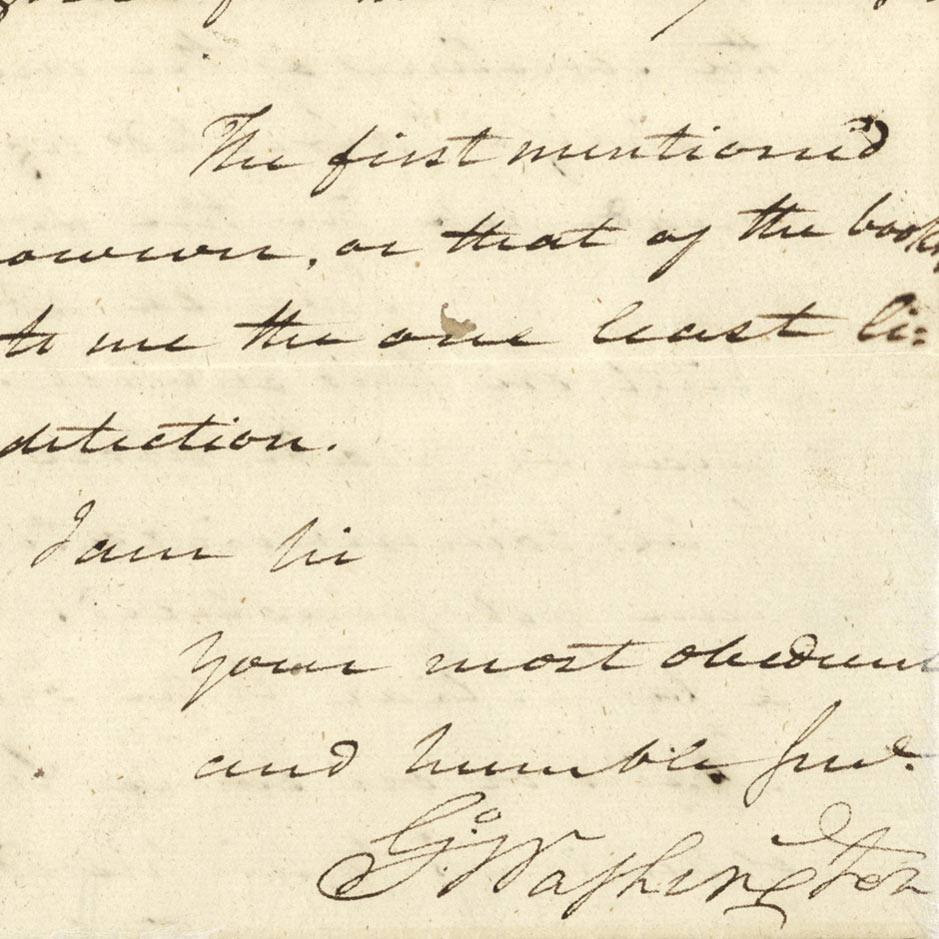 The first mentioned
however, or that of the books
to me the one least li=
detection.
I am Sir
Your most obedient
and humble Servt
Go Washington